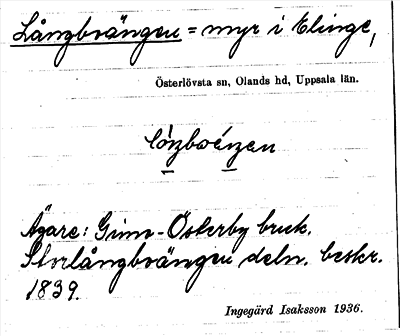 Långboängen = myr i Elinge,
Österlövsta sn, Olands hd, Uppsala län.
Ägare: Gimo-Österby bruk.
Storlångboängen deln. beskr.
1839.
Ingegärd Isaksson 1936.